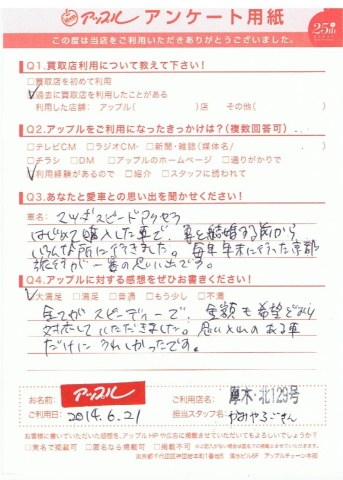 アップル アンケート用紙 25th
この度は当店をご利用いただきありがとうございました。
Q1.買取店利用について教えて下さい!
□買取店を初めて利用
☑過去に買取店を利用したことがある
利用した店舗: アップル( )店 その他( )
Q2.アップルをご利用になったきっかけは?(複数回答可)
□テレビCM □ラジオCM □新聞・雑誌(媒体名/ )
□チラシ □DM □アップルのホームページ □通りがかりで
☑利用経験があるので □紹介 □スタッフに誘われて
Q3.あなたと愛車との思い出を聞かせください!
車名: マツダスピードアクセラ
はじめて購入した車で、妻と結婚する前から
いろんな所に行きました。毎年年末に行った京都
旅行が一番の思い出です。
Q4.アップルに対する感想をぜひお書きください!
☑大満足 □満足 □普通 □もう少し □不満
全てがスピーディーで、金額も希望どおり
対応していただきました。思い入れのある車
だけにうれしかったです。
お名前: アップル ご利用店名: 厚木・北129号
ご利用日: 2014.6.21 担当スタッフ名:
お客様に書いていただいた感想を、アップルHPや広告に掲載させていただいてもよろしいでしょうか?
□実名で掲載可 □匿名なら掲載可 □掲載不可